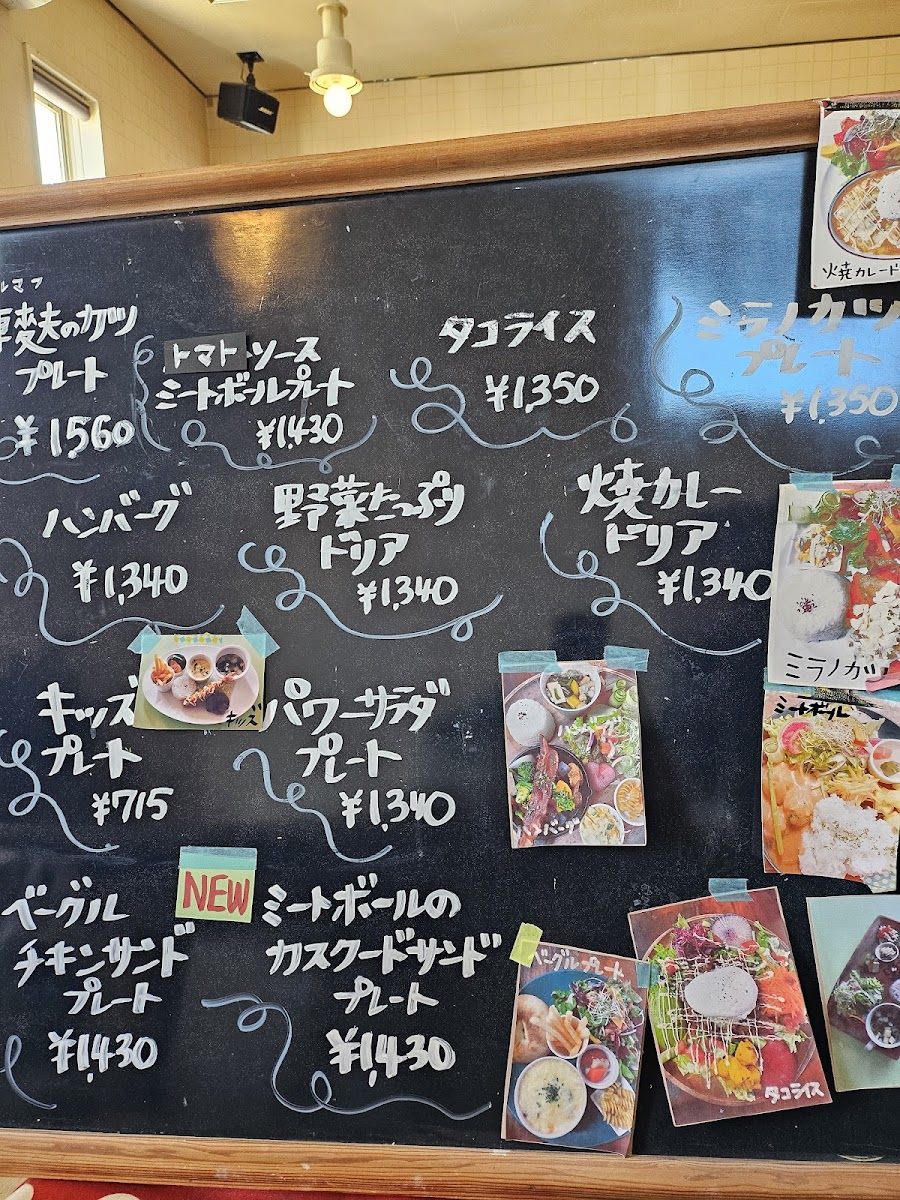 ルマン
車麩のカツ
プレート
¥1560
トマトソース
ミートボールプレート
¥1,430
タコライス
¥1,350
ミラノカツ
プレート
¥1,350
ハンバーグ
¥1,340
野菜たっぷり
ドリア
¥1,340
焼カレー
ドリア
¥1,340
キッズ
プレート
¥715
パワーサラダ
プレート
¥1,340
ベーグル
チキンサンド
プレート
¥1,430
NEW
ミートボールの
カスクードサンド
プレート
¥1,430
焼カレード
キッズ
ハンバーグ
ミラノカツ
ミートボール
ベーグルプレート
タコライス